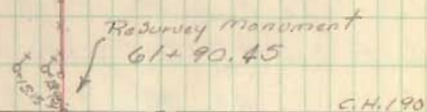 Resurvey Monument
61+90.45
C.H.190